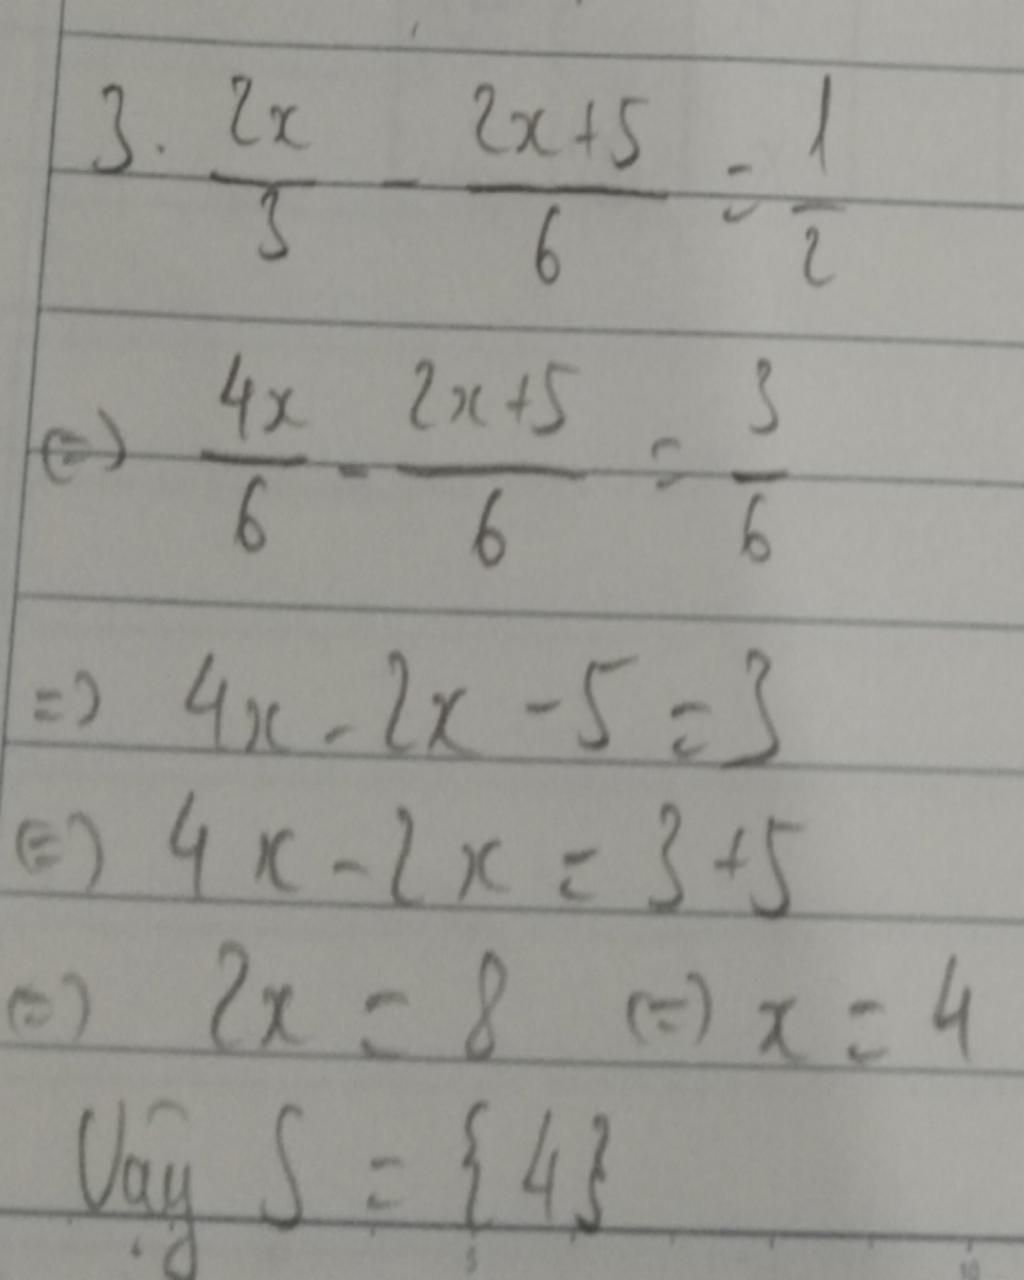 3. 2x/3 - 2x+5/6 = 1/2
<=> 4x/6 - 2x+5/6 = 3/6
=> 4x - 2x - 5 = 3
<=> 4x - 2x = 3 + 5
<=> 2x = 8 <=> x = 4
Vậy S = {4}